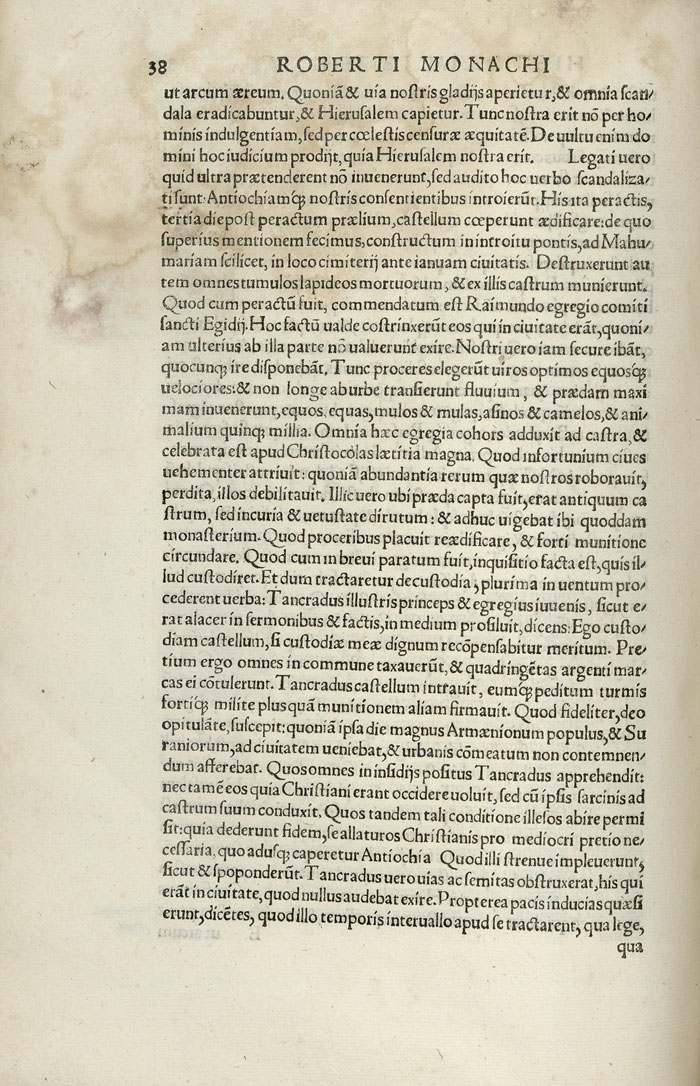 38 ROBERTI MONACHI
ut arcum æreum. Quoniã & uia nostris gladijs aperietur, & omnia scan/
dala eradicabuntur, & Hierusalem capietur. Tunc nostra erit nõ per ho/
minis indulgentiam, sed per cœlestis censuræ æquitatẽ. De uultu enim do
mini hoc iudicium prodijt, quia Hierusalem nostra erit. Legati uero
quid ultra prætenderent nõ inuenerunt, sed audito hoc uerbo scandaliza/
ti sunt. Antiochiamq́; nostris consentientibus introierũt. His ita peractis,
tertia die post peractum prælium, castellum cœperunt ædificare: de quo
superius mentionem fecimus, constructum in introitu pontis, ad Mahu/
mariam scilicet, in loco cimiterij ante ianuam ciuitatis. Destruxerunt au
tem omnes tumulos lapideos mortuorum, & ex illis castrum munierunt.
Quod cum peractũ fuit, commendatum est Raimundo egregio comiti
sancti Egidij. Hoc factũ ualde cõstrinxerũt eos qui in ciuitate erãt, quoni/
am ulterius ab illa parte nõ ualuerunt exire. Nostri uero iam secure ibãt,
quocunq; ire disponebãt. Tunc proceres elegerũt uiros optimos equosq́;
uelociores: & non longe ab urbe transierunt fluuium, & prædam maxi
mam inuenerunt, equos, equas, mulos & mulas, asinos & camelos, & ani/
malium quinq; millia. Omnia hæc egregia cohors adduxit ad castra, &
celebrata est apud Christocolas lætitia magna. Quod infortunium ciues
uehementer attriuit: quoniã abundantia rerum quæ nostros roborauit,
perdita, illos debilitauit. Illic uero ubi præda capta fuit, erat antiquum ca
strum, sed incuria & uetustate dirutum: & adhuc uigebat ibi quoddam
monasterium. Quod proceribus placuit reædificare, & forti munitione
circundare. Quod cum in breui paratum fuit, inquisitio facta est, quis il/
lud custodiret. Et dum tractaretur de custodia, plurima in uentum pro/
cederent uerba: Tancradus illustris princeps & egregius iuuenis, sicut e/
rat alacer in sermonibus & factis, in medium prosiluit, dicens: Ego custo/
diam castellum, si custodiæ meæ dignum recõpensabitur meritum. Pre/
tium ergo omnes in commune taxauerũt, & quadringẽtas argenti mar/
cas ei cõtulerunt. Tancradus castellum intrauit, eumq́; peditum turmis
fortiq́; milite plus quã munitionem aliam firmauit. Quod fideliter, deo
opitulãte, suscepit: quoniã ipsa die magnus Armænionum populus, & Su
raniorum, ad ciuitatem ueniebat, & urbanis cõmeatum non contemnen/
dum afferebat. Quos omnes in insidijs positus Tancradus apprehendit:
nec tamẽ eos quia Christiani erant occidere uoluit, sed cũ ipsis sarcinis ad
castrum suum conduxit. Quos tandem tali conditione illesos abire permi
sit: quia dederunt fidem, se allaturos Christianis pro mediocri pretio ne/
cessaria, quo adusq; caperetur Antiochia Quod illi strenue impleuerunt,
sicut & spoponderũt. Tancradus uero uias ac semitas obstruxerat, his qui
erãt in ciuitate, quod nullus audebat exire. Propterea pacis inducias quæsi
erunt, dicẽtes, quod illo temporis interuallo apud se tractarent, qua lege,
qua